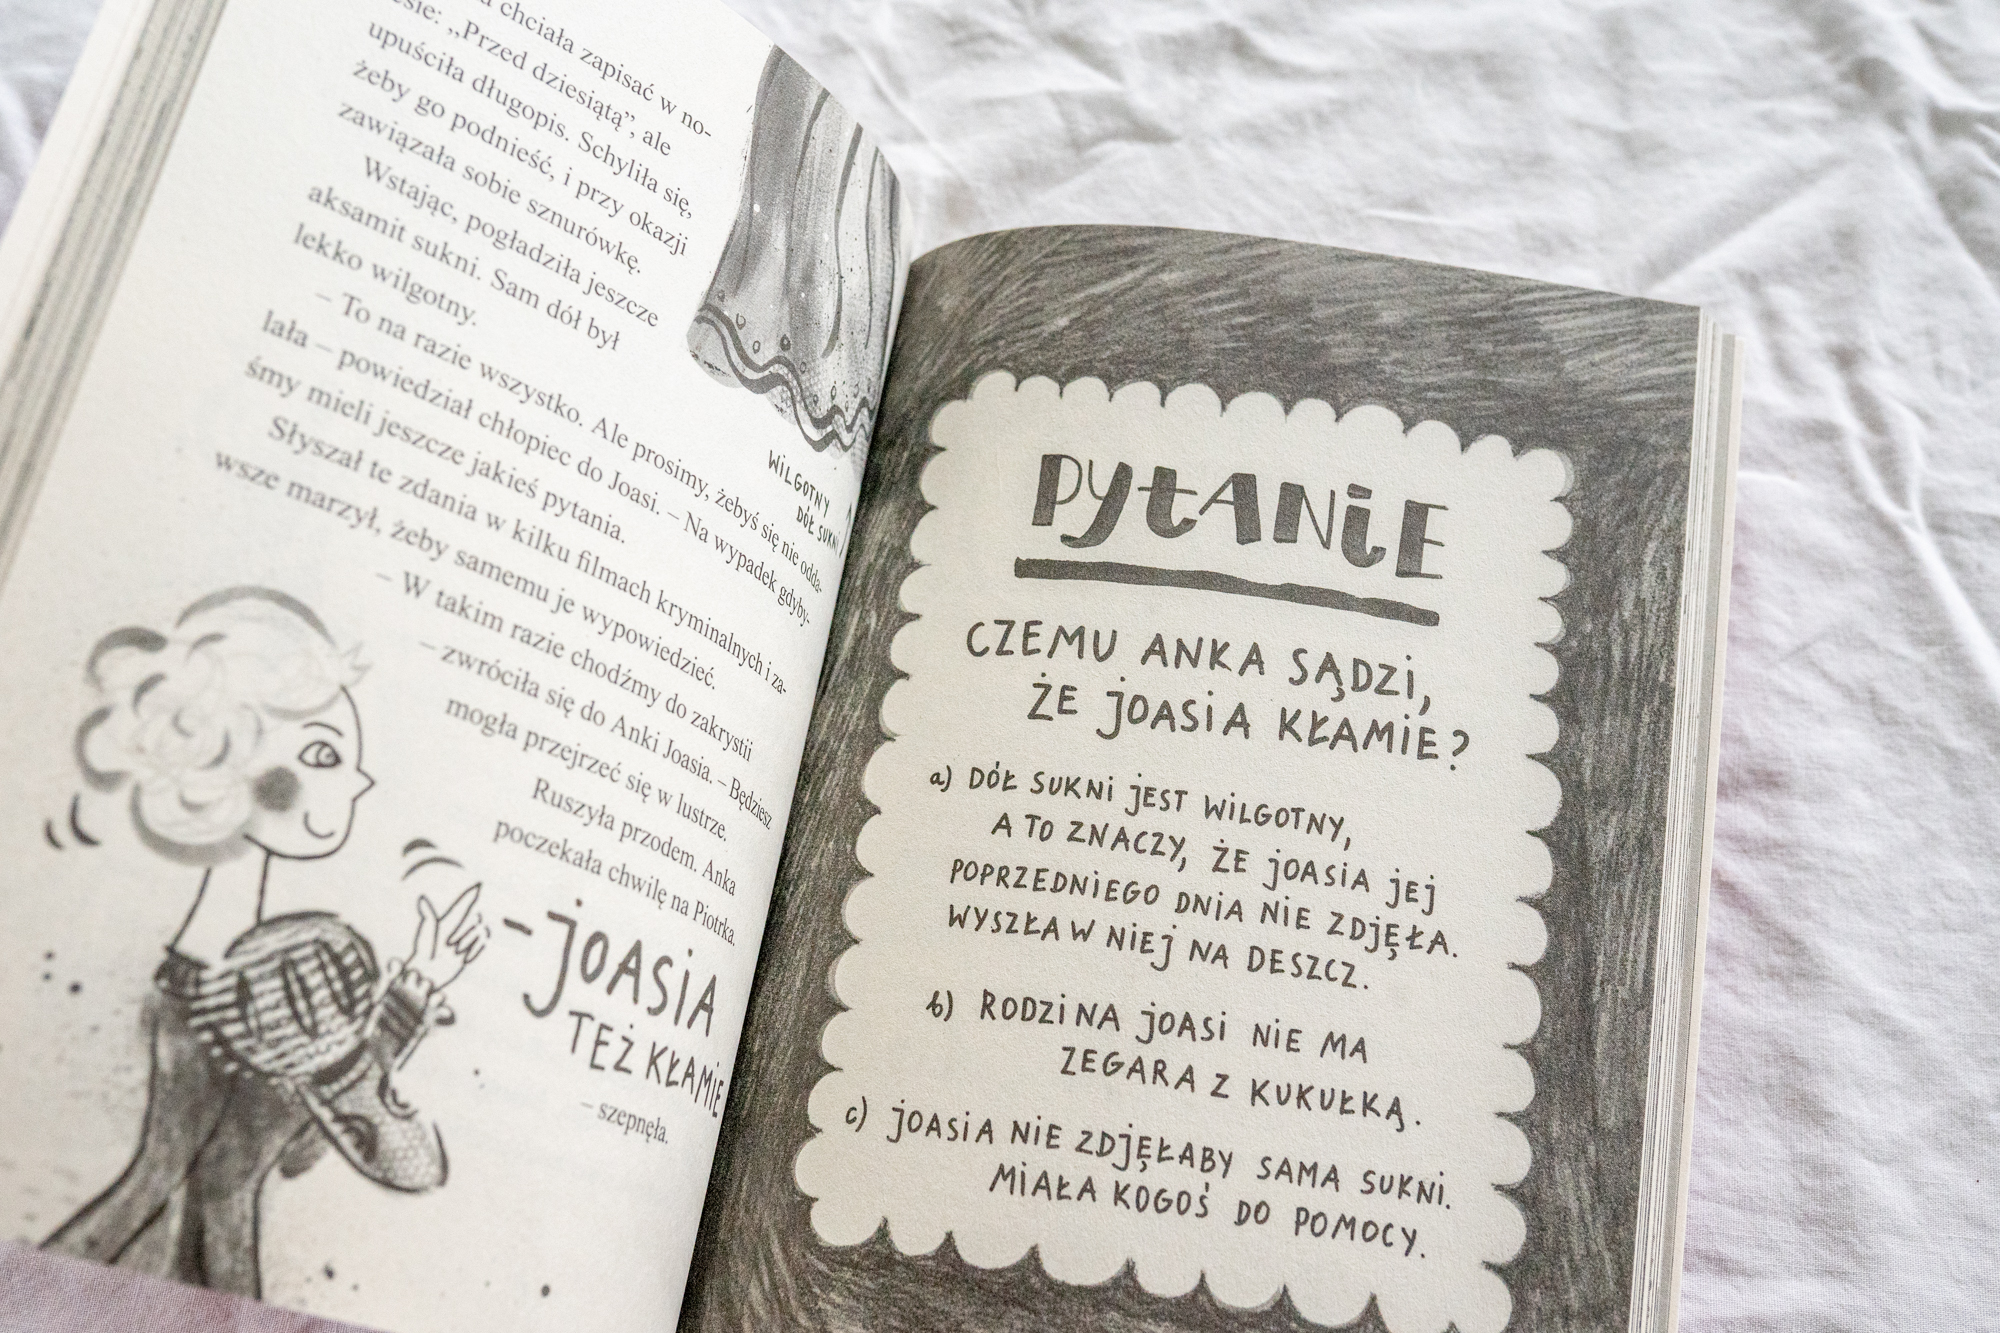 a chciała zapisać w no-
esie: „Przed dziesiątą”, ale
upuściła długopis. Schyliła się,
żeby go podnieść, i przy okazji
zawiązała sobie sznurówkę.
Wstając, pogładziła jeszcze
aksamit sukni. Sam dół był
lekko wilgotny.
– To na razie wszystko. Ale prosimy, żebyś się nie odda-
lała – powiedział chłopiec do Joasi. – Na wypadek gdyby-
śmy mieli jeszcze jakieś pytania.
Słyszał te zdania w kilku filmach kryminalnych i za-
wsze marzył, żeby samemu je wypowiedzieć.
– W takim razie chodźmy do zakrystii
– zwróciła się do Anki Joasia. – Będziesz
mogła przejrzeć się w lustrze.
Ruszyła przodem. Anka
poczekała chwilę na Piotrka.
– JOASIA
TEŻ KŁAMIE
– szepnęła.
WILGOTNY
DÓŁ SUKNI
PYTANIE
CZEMU ANKA SĄDZI,
ŻE JOASIA KŁAMIE?
a) DÓŁ SUKNI JEST WILGOTNY,
A TO ZNACZY, ŻE JOASIA JEJ
POPRZEDNIEGO DNIA NIE ZDJĘŁA.
WYSZŁA W NIEJ NA DESZCZ.
b) RODZINA JOASI NIE MA
ZEGARA Z KUKUŁKĄ.
c) JOASIA NIE ZDJĘŁABY SAMA SUKNI.
MIAŁA KOGOŚ DO POMOCY.